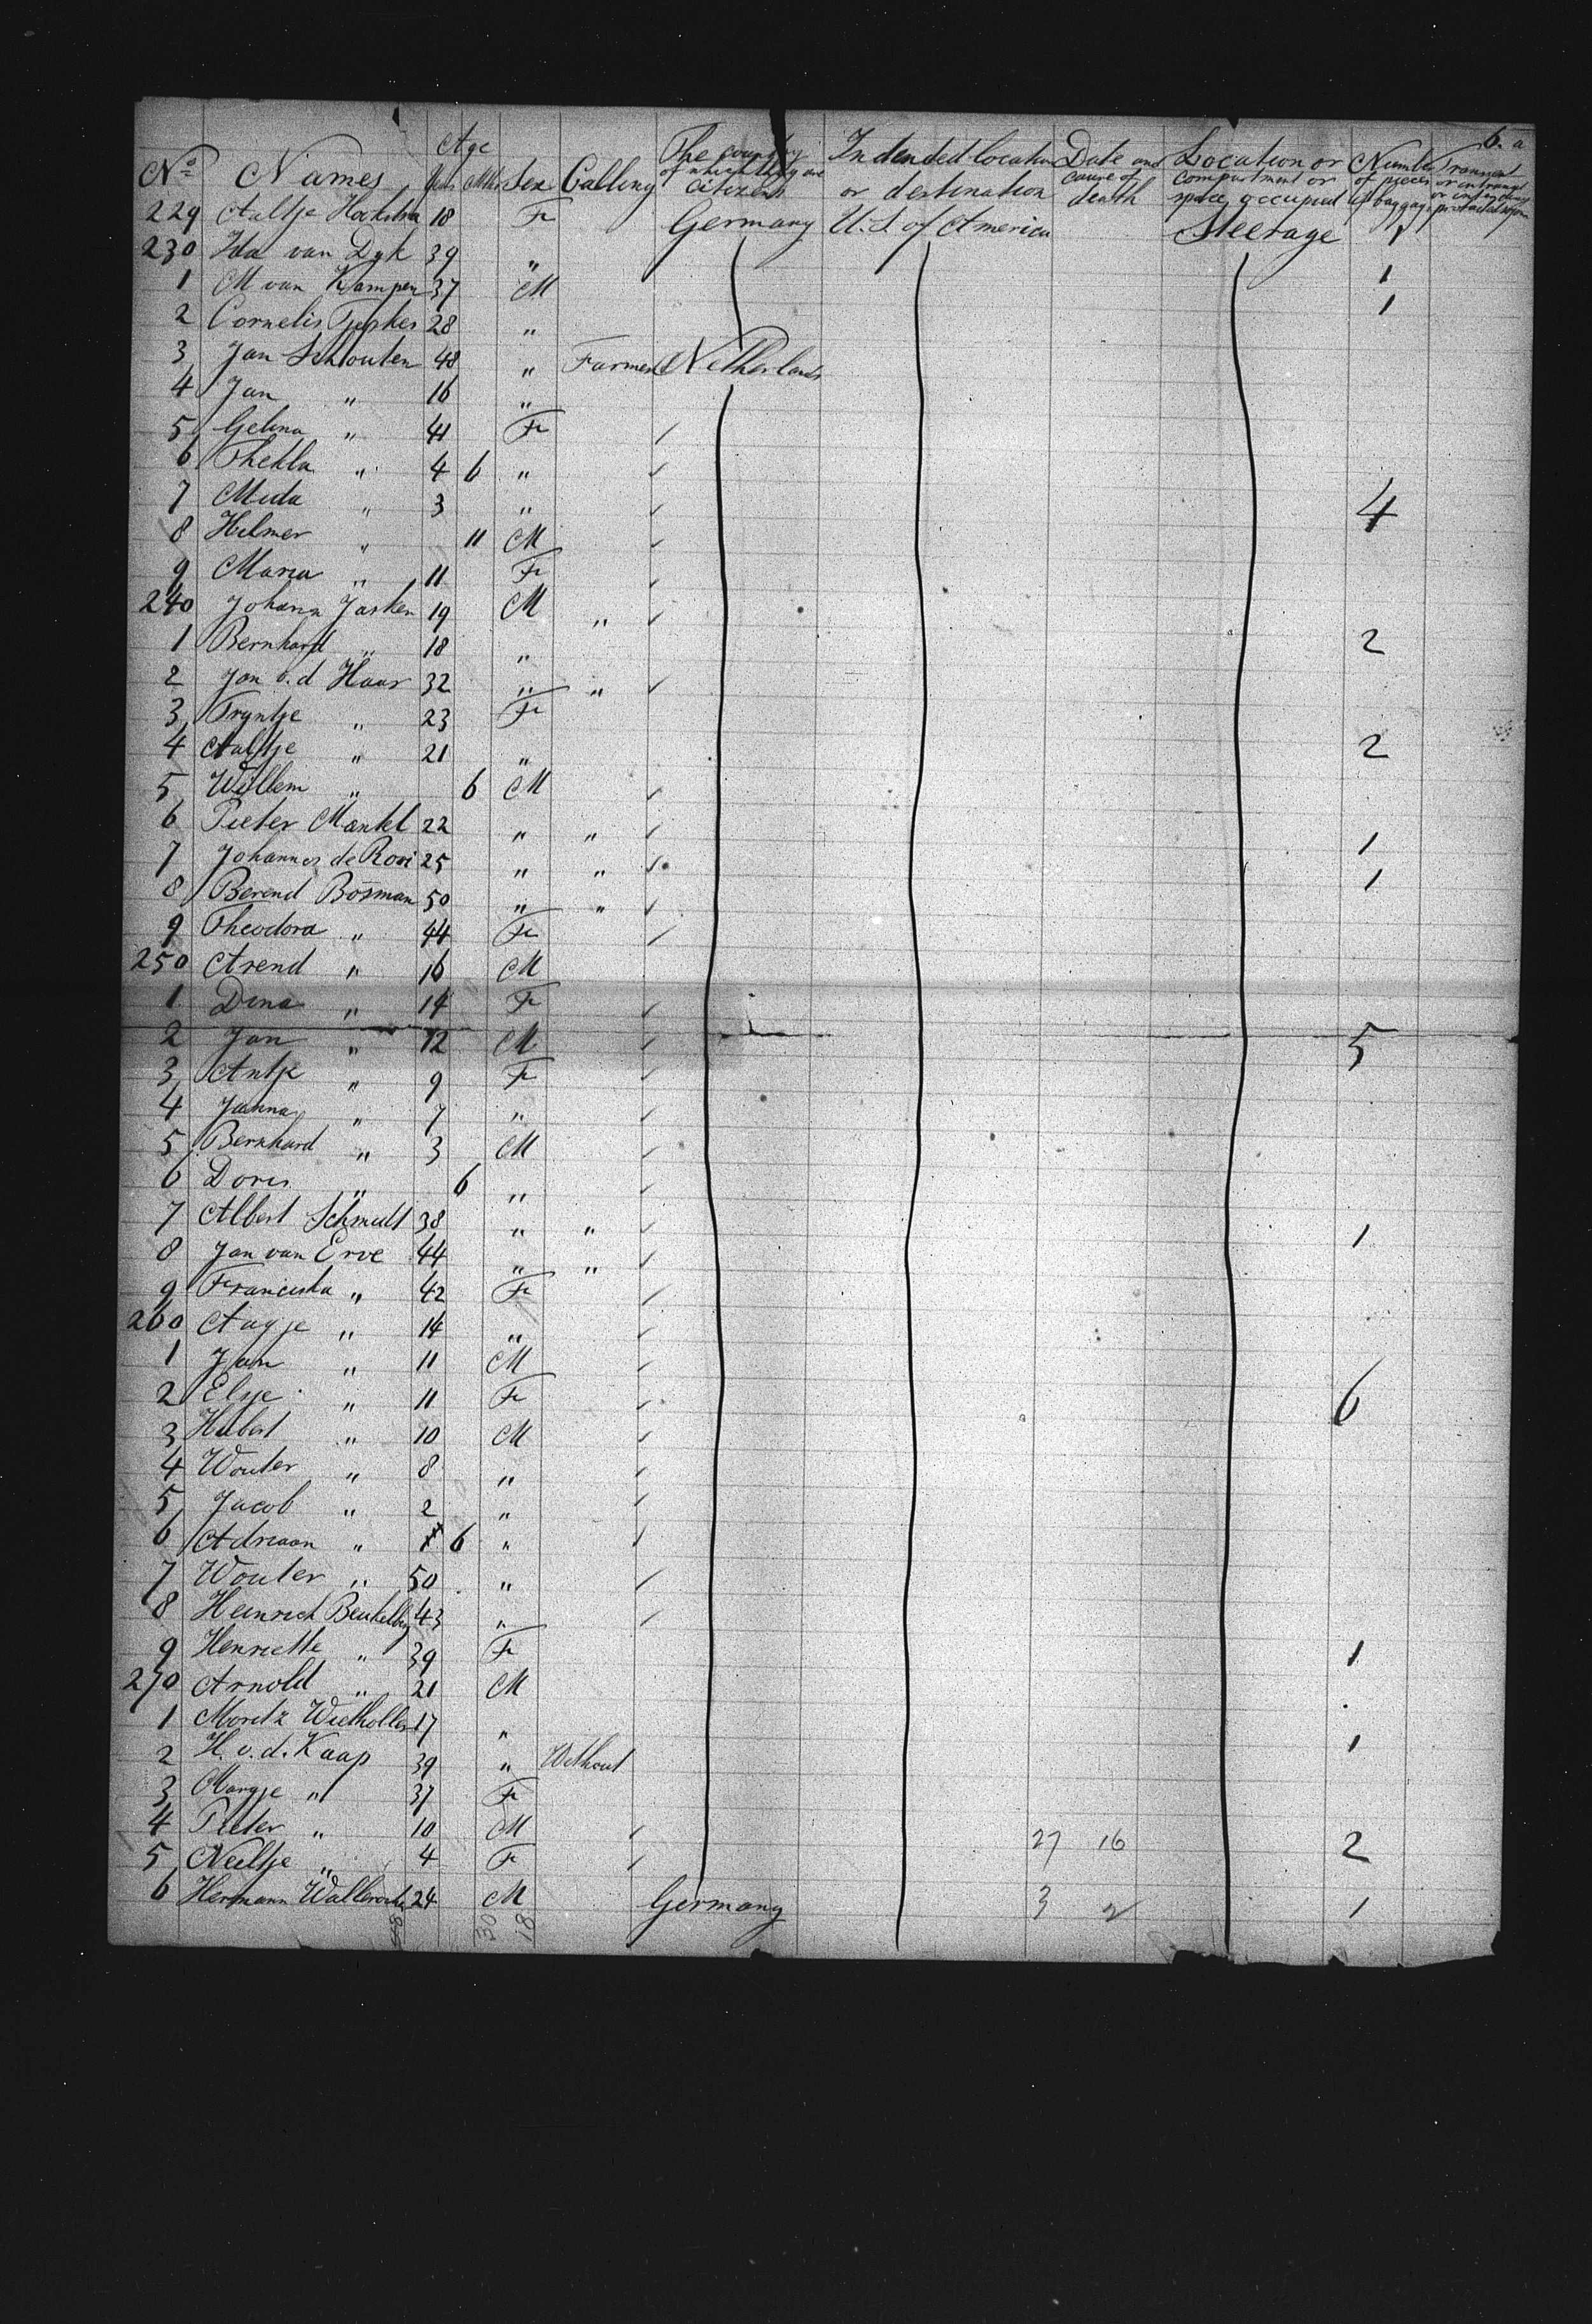 6. a
Age
No Names Years Mths Sex Calling The country of which they are citizens Intended location or destination Date and cause of death Location or compartment or space occupied Number of pieces of baggage Transient
229 Aaltje Hoekstra 18 F Germany U.S. of America Steerage 1
230 Ida van Dyk 39 " 1
1 M van Kampen 37 M 1
2 Cornelis 28 "
3 Jan Schouten 48 " Farmer Netherlands
4 Jan " 16 "
5 Gelina " 41 F
6 Thekla " 4 6 "
7 Mida " 3 " 4
8 Hilmer " 11 M
9 Maria " 11 F
240 Johann Jasken 19 M "
1 Bernhard " 18 " 2
2 Jan v.d Haar 32 " "
3 Tryntje " 23 F
4 Aaltje " 21 " 2
5 Willem " 6 M
6 Pieter Mantel 22 " " 1
7 Johannes de Rooi 25 " " 1
8 Berend Bosman 50 " "
9 Theodora " 44 F
250 Arend " 16 M
1 Dina " 14 F
2 Jan " 12 M 5
3 Antje " 9 F
4 Janna " 7 "
5 Bernhard " 3 M
6 Doris " 6 "
7 Albert Schmidt 38 " " 1
8 Jan van Erve 44 " "
9 Franciska " 42 F
260 Aagje " 14 "
1 Jan " 11 M
2 Elsje " 11 F 6
3 Hubert " 10 M
4 Wouter " 8 "
5 Jacob " 2 "
6 Adriaan " 6 "
7 Wouter " 50 "
8 Heinrich 43 "
9 Henriette " 39 F 1
270 Arnold " 21 M
1 Moritz 17 " 1
2 H. v. d. Kaap 39 " Without
3 Margje " 37 F
4 Pieter " 10 M 27 16 2
5 Neeltje " 4 F
6 Hermann 24 M Germany 3 2 1
30 18